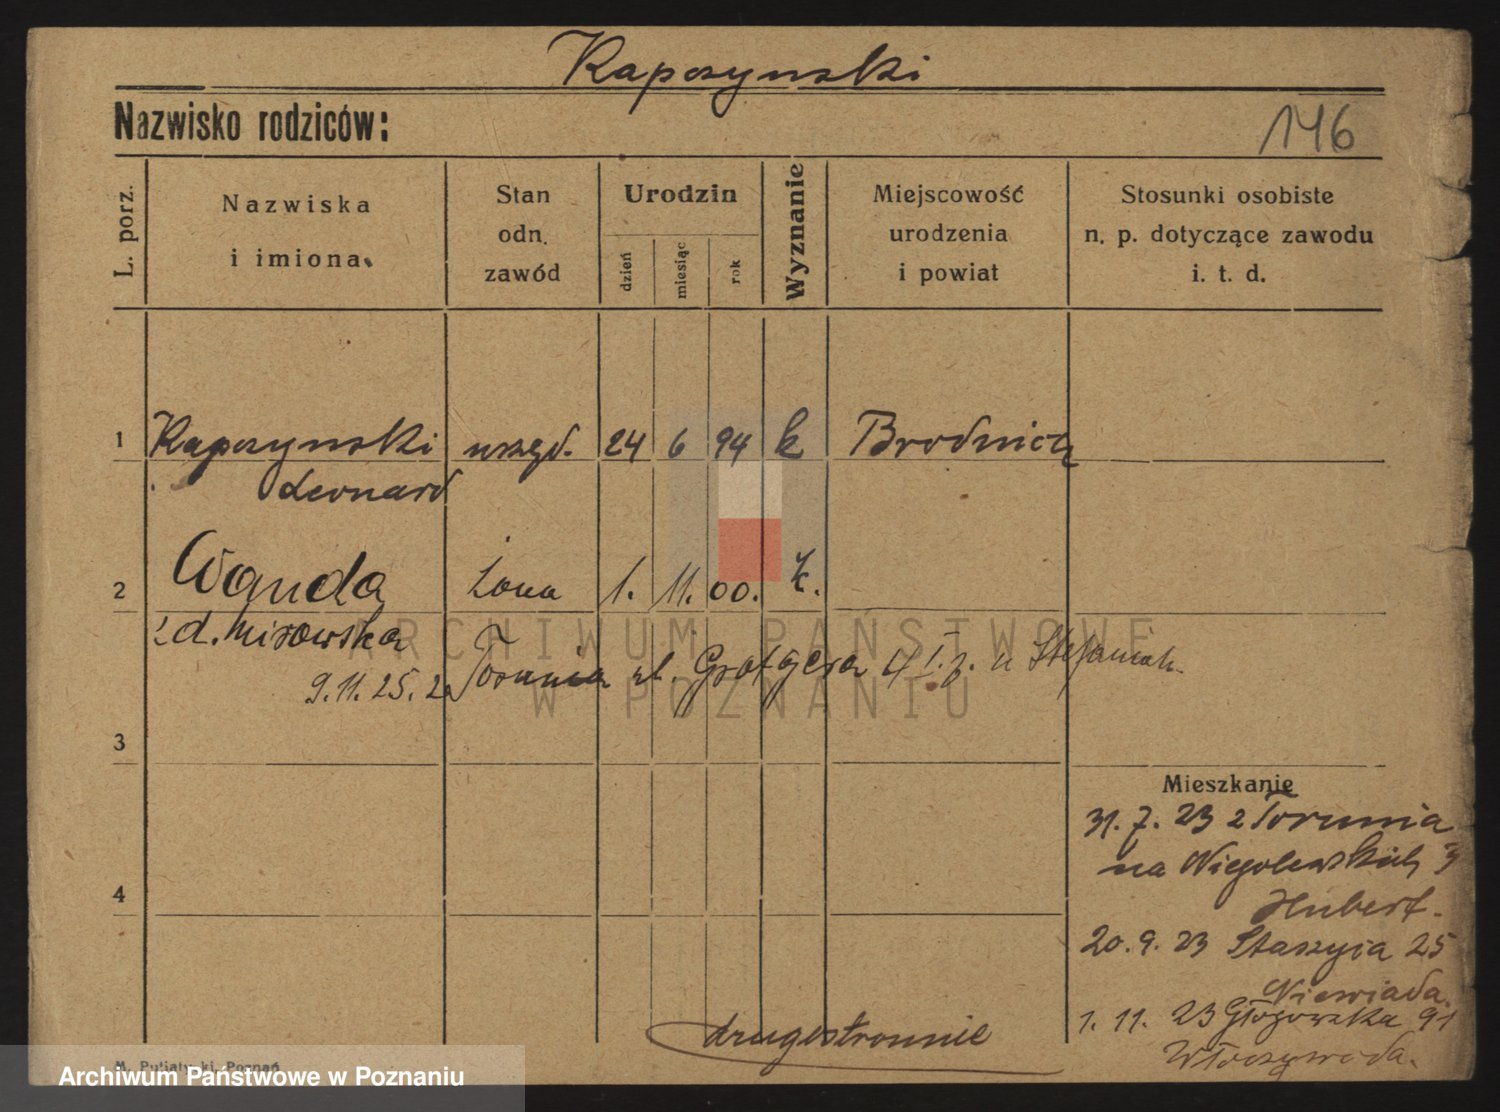 Kapczynski
Nazwisko rodziców:
146
L. porz.
Nazwiska
i imiona.
Stan
odn.
zawód
Urodzin
dzień
miesiąc
rok
Wyznanie
Miejscowość
urodzenia
i powiat
Stosunki osobiste
n. p. dotyczące zawodu
i. t. d.
1 Kapczynski urzęd. 24 6 94 k Brodnica
Leonard
2 Wanda żona 1. 11. 00. k.
ARCHIWUM PAŃSTWOWE
W POZNANIU
9.11.25. z Torunia ul. Grotgera 4 I p. u Stefaniak
3
4
Mieszkanie
31. 7. 23 z Torunia
na Niegolewskich
Hubert.
20. 9. 23 Staszyca 25
Niewiada.
1. 11. 23 Głogowska 91
drugostronnie
M. Putiatycki, Poznań
Archiwum Państwowe w Poznaniu